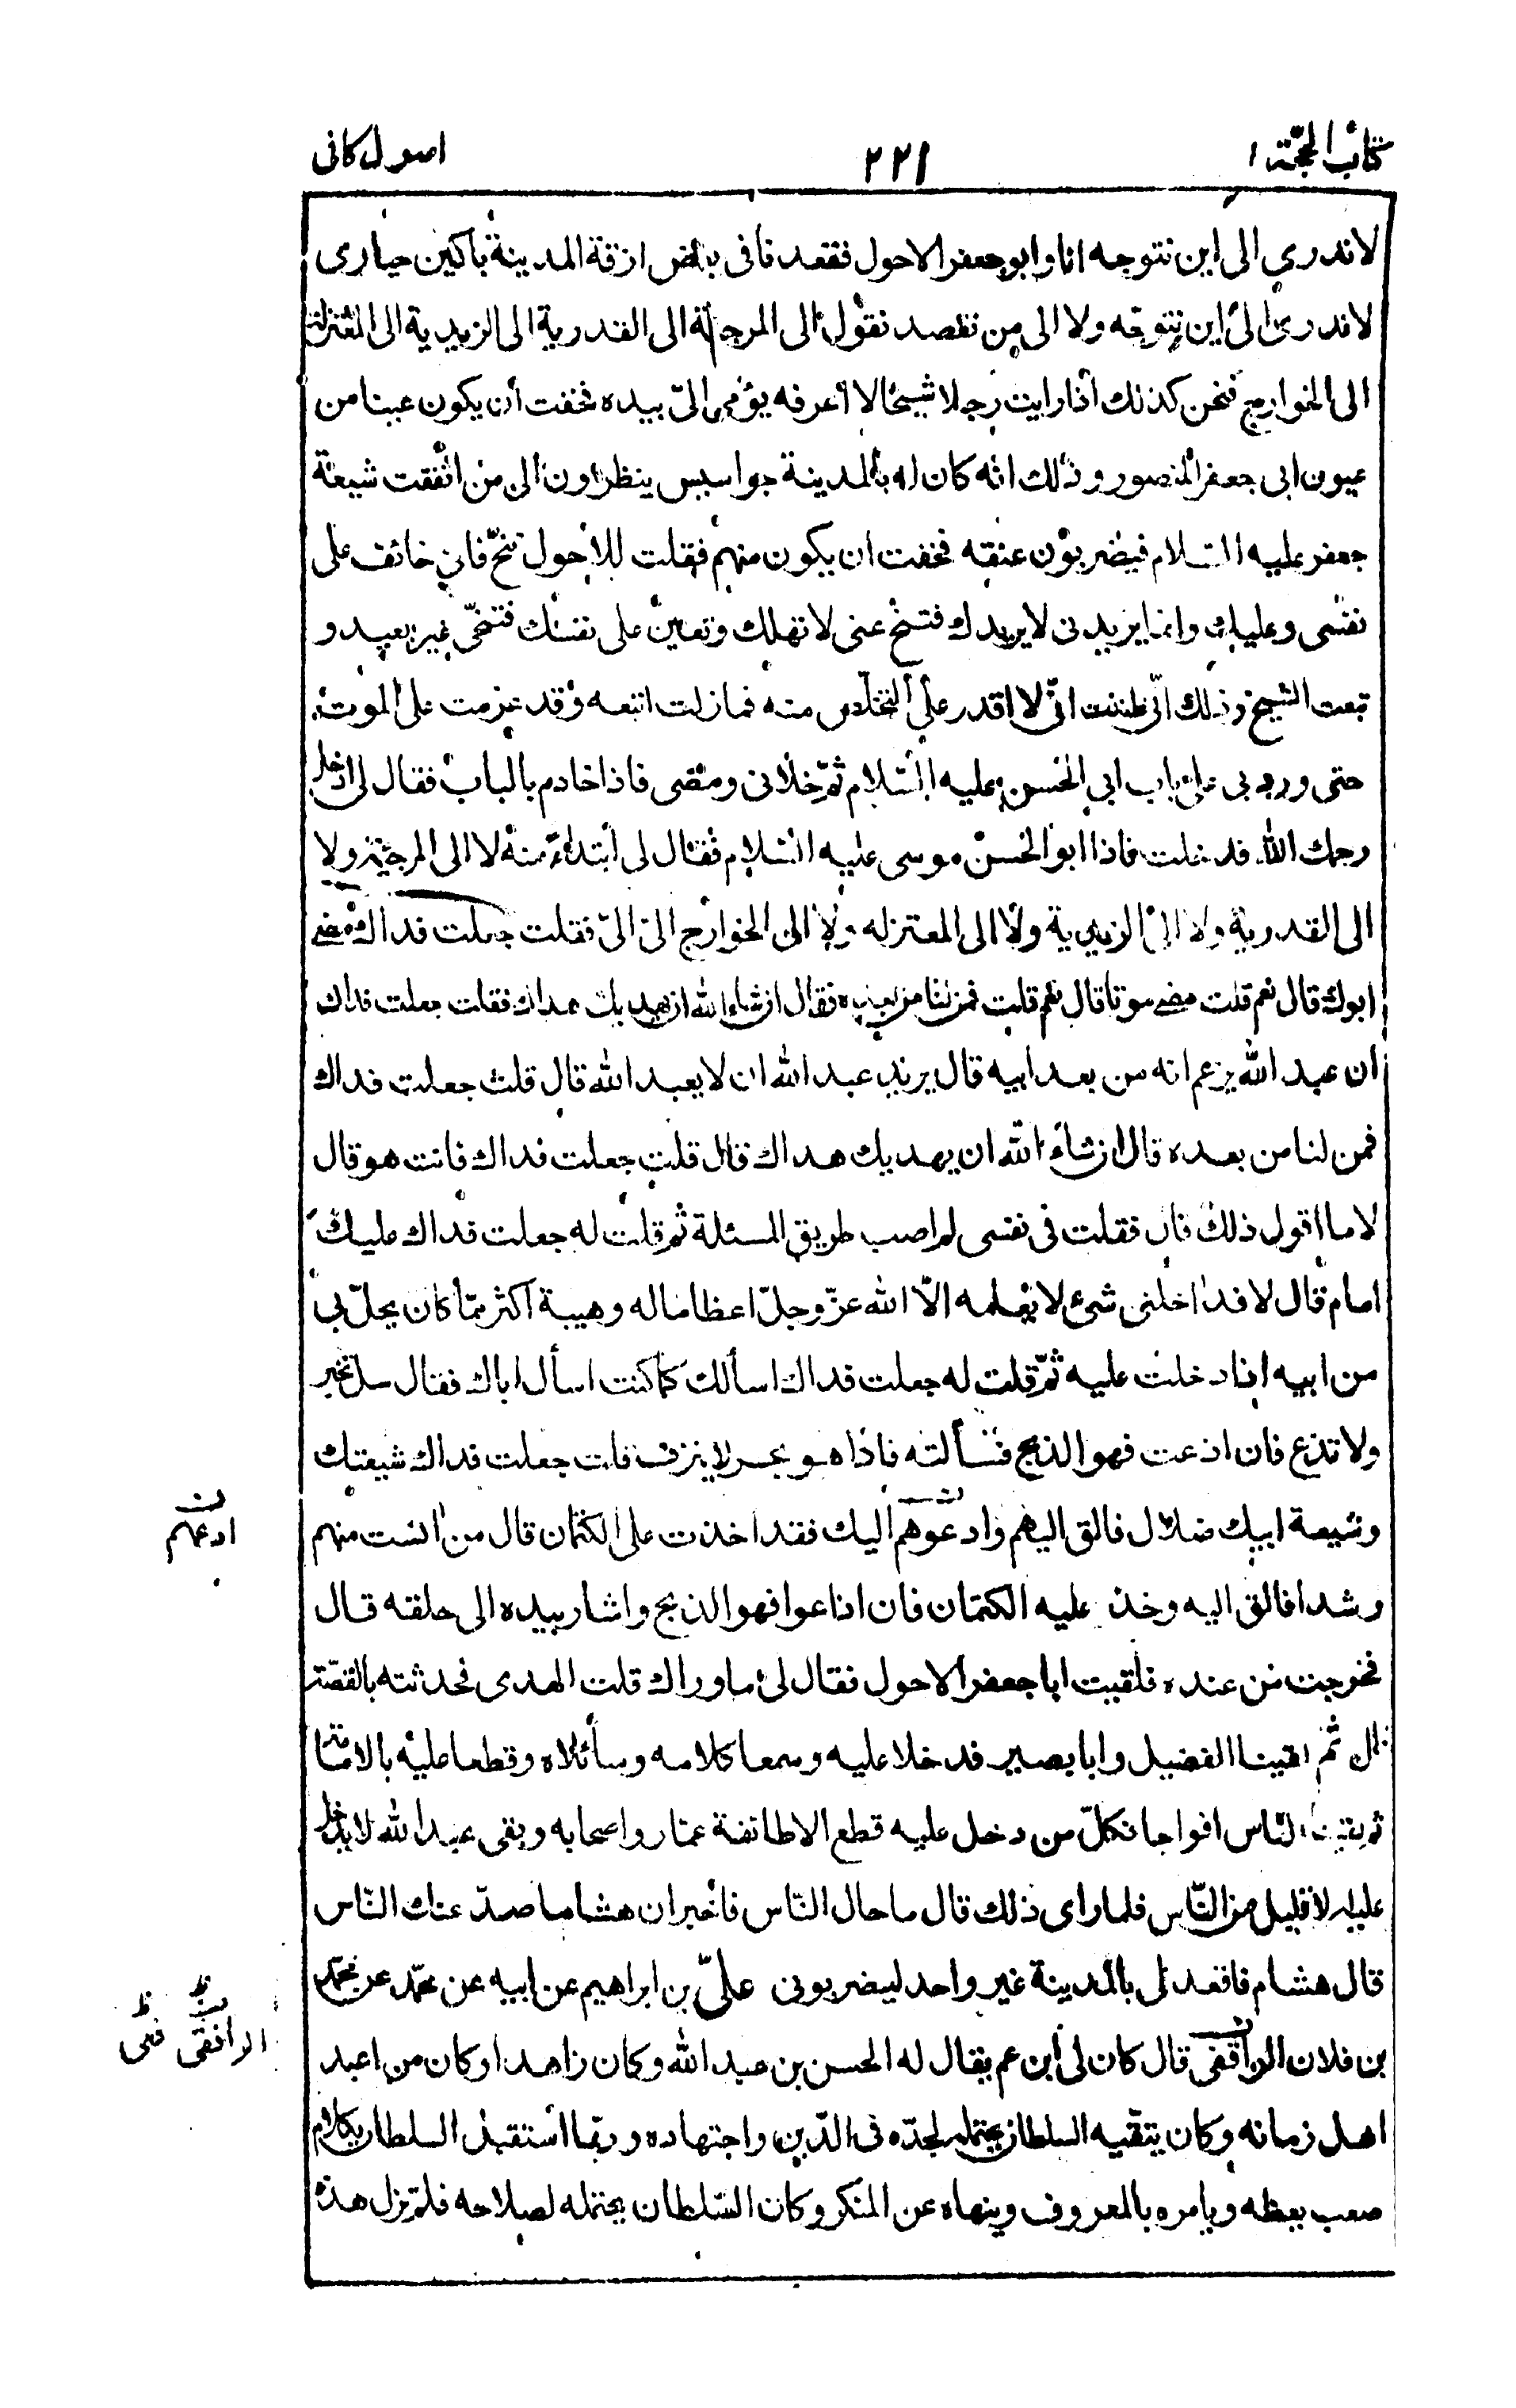 كتاب الحجّة
٢٢١
اصول كافى
لاندرى الى اين نتوجه انا وابو جعفر الاحول فقعدنا فى بعض ازقة المدينة باكين حيارى
لاندرى الى اين نتوجّه ولا الى من نقصد نقول الى المرجئة الى القدرية الى الزيدية الى المعتزلة
الى الخوارج فنحن كذلك اذ رايت رجلا شيخا لا اعرفه يؤمى الىّ بيده فخفت ان يكون عينا من
عيون ابى جعفر المنصور وذلك انّه كان له بالمدينة جواسيس ينظرون الى من اتّفقت شيعة
جعفر عليه السّلام فيضربون عنقه فخفت ان يكون منهم فقلت للاحول تنحّ فانى خائف على
نفسى وعليك وانما يريدنى لا يريدك فتنحّ عنى لا تهلك وتعين على نفسك فتنحّى غير بعيد و
تبعت الشيخ وذلك انّى ظننت انّى لا اقدر على التخلّص منه فمازلت اتبعه وقد عزمت على الموت
حتى ورد بى على باب ابى الحسن عليه السّلام ثمّ خلانى ومضى فاذا خادم بالباب فقال لى ادخل
رحمك الله فدخلت فاذا ابو الحسن موسى عليه السّلام فقال لى ابتداء منه لا الى المرجئة ولا
الى القدرية ولا الى الزيدية ولا الى المعتزله ولا الى الخوارج الىّ الىّ فقلت جعلت فداك مضى
ابوك قال نعم قلت مضى موتا قال نعم قلت فمن لنا من بعده فقال ان شاء الله ان يهديك هداك فقلت جعلت فداك
ان عبد الله يزعم انه من بعد ابيه قال يريد عبد الله ان لا يعبد الله قال قلت جعلت فداك
فمن لنا من بعده قال ان شاء الله ان يهديك هداك قال قلت جعلت فداك فانت هو قال
لا ما اقول ذلك قال فقلت فى نفسى لم اصب طريق المسئلة ثم قلت له جعلت فداك عليك
امام قال لا فداخلنى شىء لا يعلمه الّا الله عزّ وجلّ اعظاما له وهيبة اكثر ممّا كان يحلّ بى
من ابيه اذا دخلت عليه ثمّ قلت له جعلت فداك اسالك كما كنت اسأل اباك فقال سل تخبر
ولا تذع فان اذعت فهو الذبح فسألته فاذا هو بحر لا ينزف قلت جعلت فداك شيعتك
وشيعة ابيك ضلال فالق اليهم وادعوهم اليك فقد اخذت على الكتمان قال من انست منهم
ادعهم
رشدا فالق اليه وخذ عليه الكتمان فان اذاعوا فهو الذبح واشار بيده الى حلقه قال
فخرجت من عنده فلقيت ابا جعفر الاحول فقال لى ما وراك قلت الهدى فحدثته بالقصّة
قال ثم لقينا الفضيل وابا بصير فدخلا عليه وسمعا كلامه وسألاه وقطعا عليه بالامامة
ثم لقينا الناس افواجا فكلّ من دخل عليه قطع الا طائفة عمار واصحابه وبقى عبد الله لا يدخل
عليه الا قليل من النّاس فلما راى ذلك قال ما حال النّاس فاخبر ان هشاما صدّ عنك النّاس
قال هشام فاقعد لى بالمدينة غير واحد ليضربونى علىّ بن ابراهيم عن ابيه عن محمّد عن محمّد
بن فلان الواقفى قال كان لى ابن عم يقال له الحسن بن عبد الله وكان زاهدا وكان من اعبد
الرافقى
اهل زمانه وكان يتّقيه السلطان لجدّه فى الدّين واجتهاده وربّما استقبل السلطان بكلام
صعب يعظه ويامره بالمعروف وينهاه عن المنكر وكان السّلطان يحتمله لصلاحه فلم يزل هذه